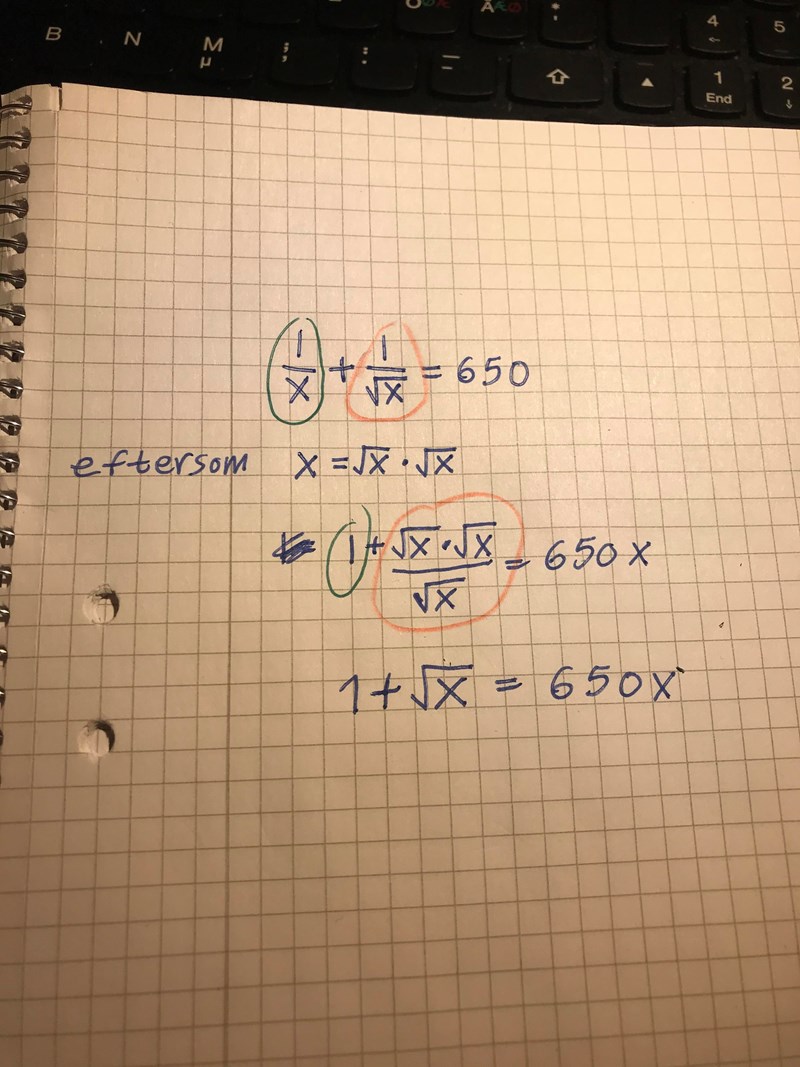 B N M µ ; , : . _ - ⇧ ▲ 1 End 2 ↓
4 ← 5
1/x + 1/√x = 650
eftersom x = √x · √x
1 + √x · √x / √x = 650x
1 + √x = 650x